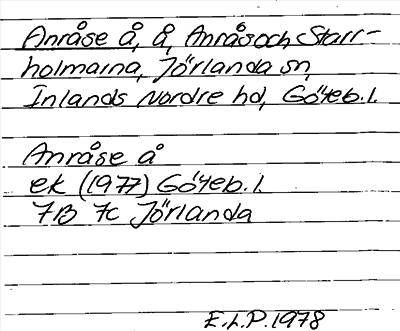 Anråse å, å, Anrås och Starr-
holmarna, Jörlanda sn,
Inlands Nordre hd, Göteb. l.
Anråse å
ek (1977) Göteb. l.
7B 7c Jörlanda
E.L.P. 1978